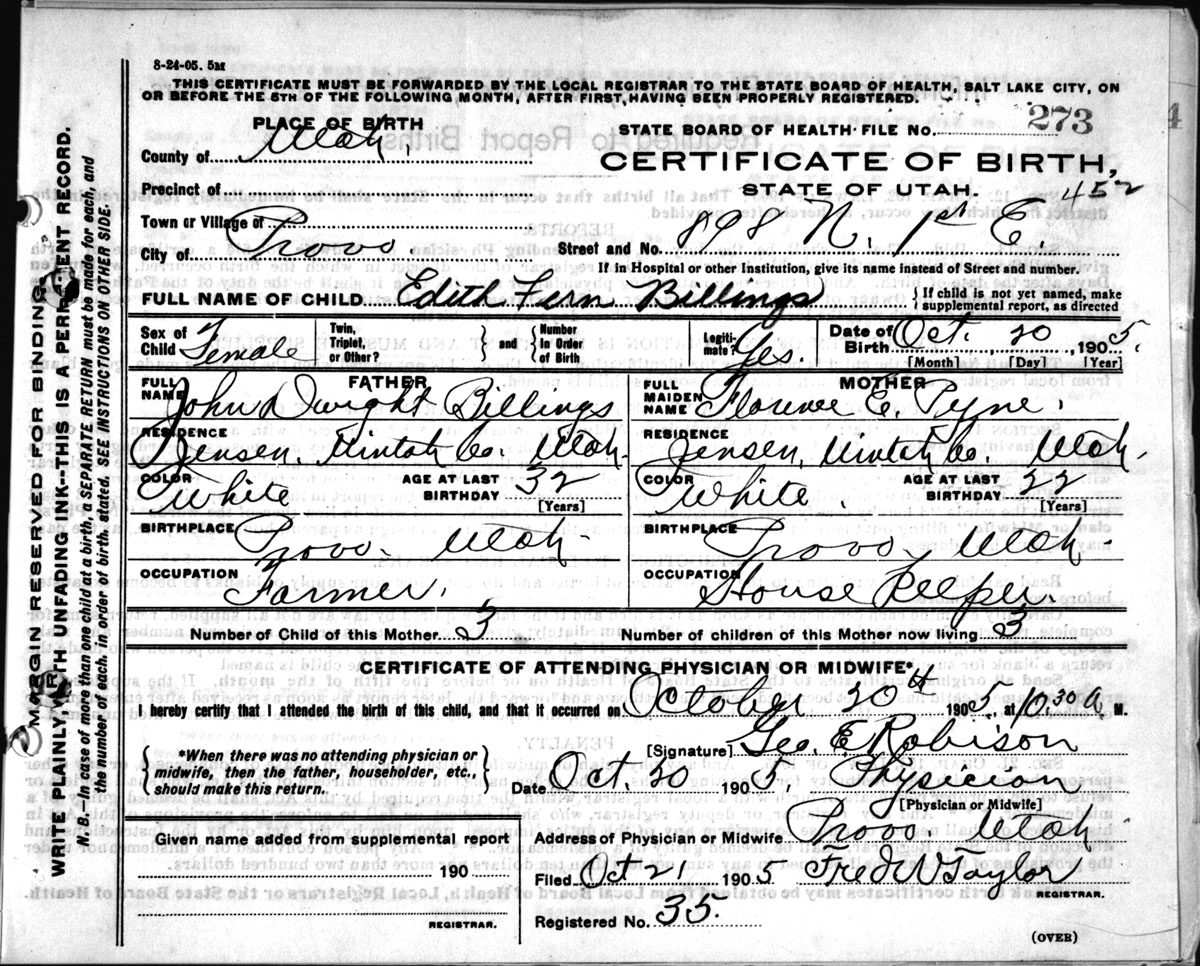 8-24-05. 5M
THIS CERTIFICATE MUST BE FORWARDED BY THE LOCAL REGISTRAR TO THE STATE BOARD OF HEALTH, SALT LAKE CITY, ON
OR BEFORE THE 5TH OF THE FOLLOWING MONTH, AFTER FIRST HAVING BEEN PROPERLY REGISTERED.
PLACE OF BIRTH
STATE BOARD OF HEALTH-FILE NO. 273
County of Utah.
CERTIFICATE OF BIRTH,
Precinct of
STATE OF UTAH. 452
Town or Village of
City of Provo.
Street and No. N. 1st E.
If in Hospital or other Institution, give its name instead of Street and number.
FULL NAME OF CHILD Edith Fern Billings } If child is not yet named, make supplemental report, as directed
Sex of Child Female Twin, Triplet, or Other? } and { Number In Order of Birth Legitimate? Yes. Date of Birth Oct. 20, 1905. [Month] [Day] [Year]
FATHER
FULL NAME John Dwight Billings
RESIDENCE Jensen, Uintah Co. Utah.
COLOR White AGE AT LAST BIRTHDAY 32 [Years]
BIRTHPLACE Provo- Utah-
OCCUPATION Farmer.
MOTHER
FULL MAIDEN NAME Florence E. Pyne.
RESIDENCE Jensen, Uintah Co. Utah.
COLOR White. AGE AT LAST BIRTHDAY 22 [Years]
BIRTHPLACE Provo, Utah-
OCCUPATION House Keeper.
Number of Child of this Mother 3 Number of children of this Mother now living 3
CERTIFICATE OF ATTENDING PHYSICIAN OR MIDWIFE*
I hereby certify that I attended the birth of this child, and that it occurred on October 20th 1905, at 10.30 A. M.
{ *When there was no attending physician or midwife, then the father, householder, etc., should make this return. }
[Signature] Geo. E Robison
Date Oct. 20 1905, Physician
[Physician or Midwife]
Given name added from supplemental report
190
REGISTRAR.
Address of Physician or Midwife Provo Utah
Filed Oct 21 1905 Fred W Taylor
REGISTRAR.
Registered No. 35.
(OVER)
MARGIN RESERVED FOR BINDING
WRITE PLAINLY, WITH UNFADING INK--THIS IS A PERMANENT RECORD.
N. B.--In case of more than one child at a birth, a SEPARATE RETURN must be made for each, and
the number of each, in order of birth, stated. SEE INSTRUCTIONS ON OTHER SIDE.